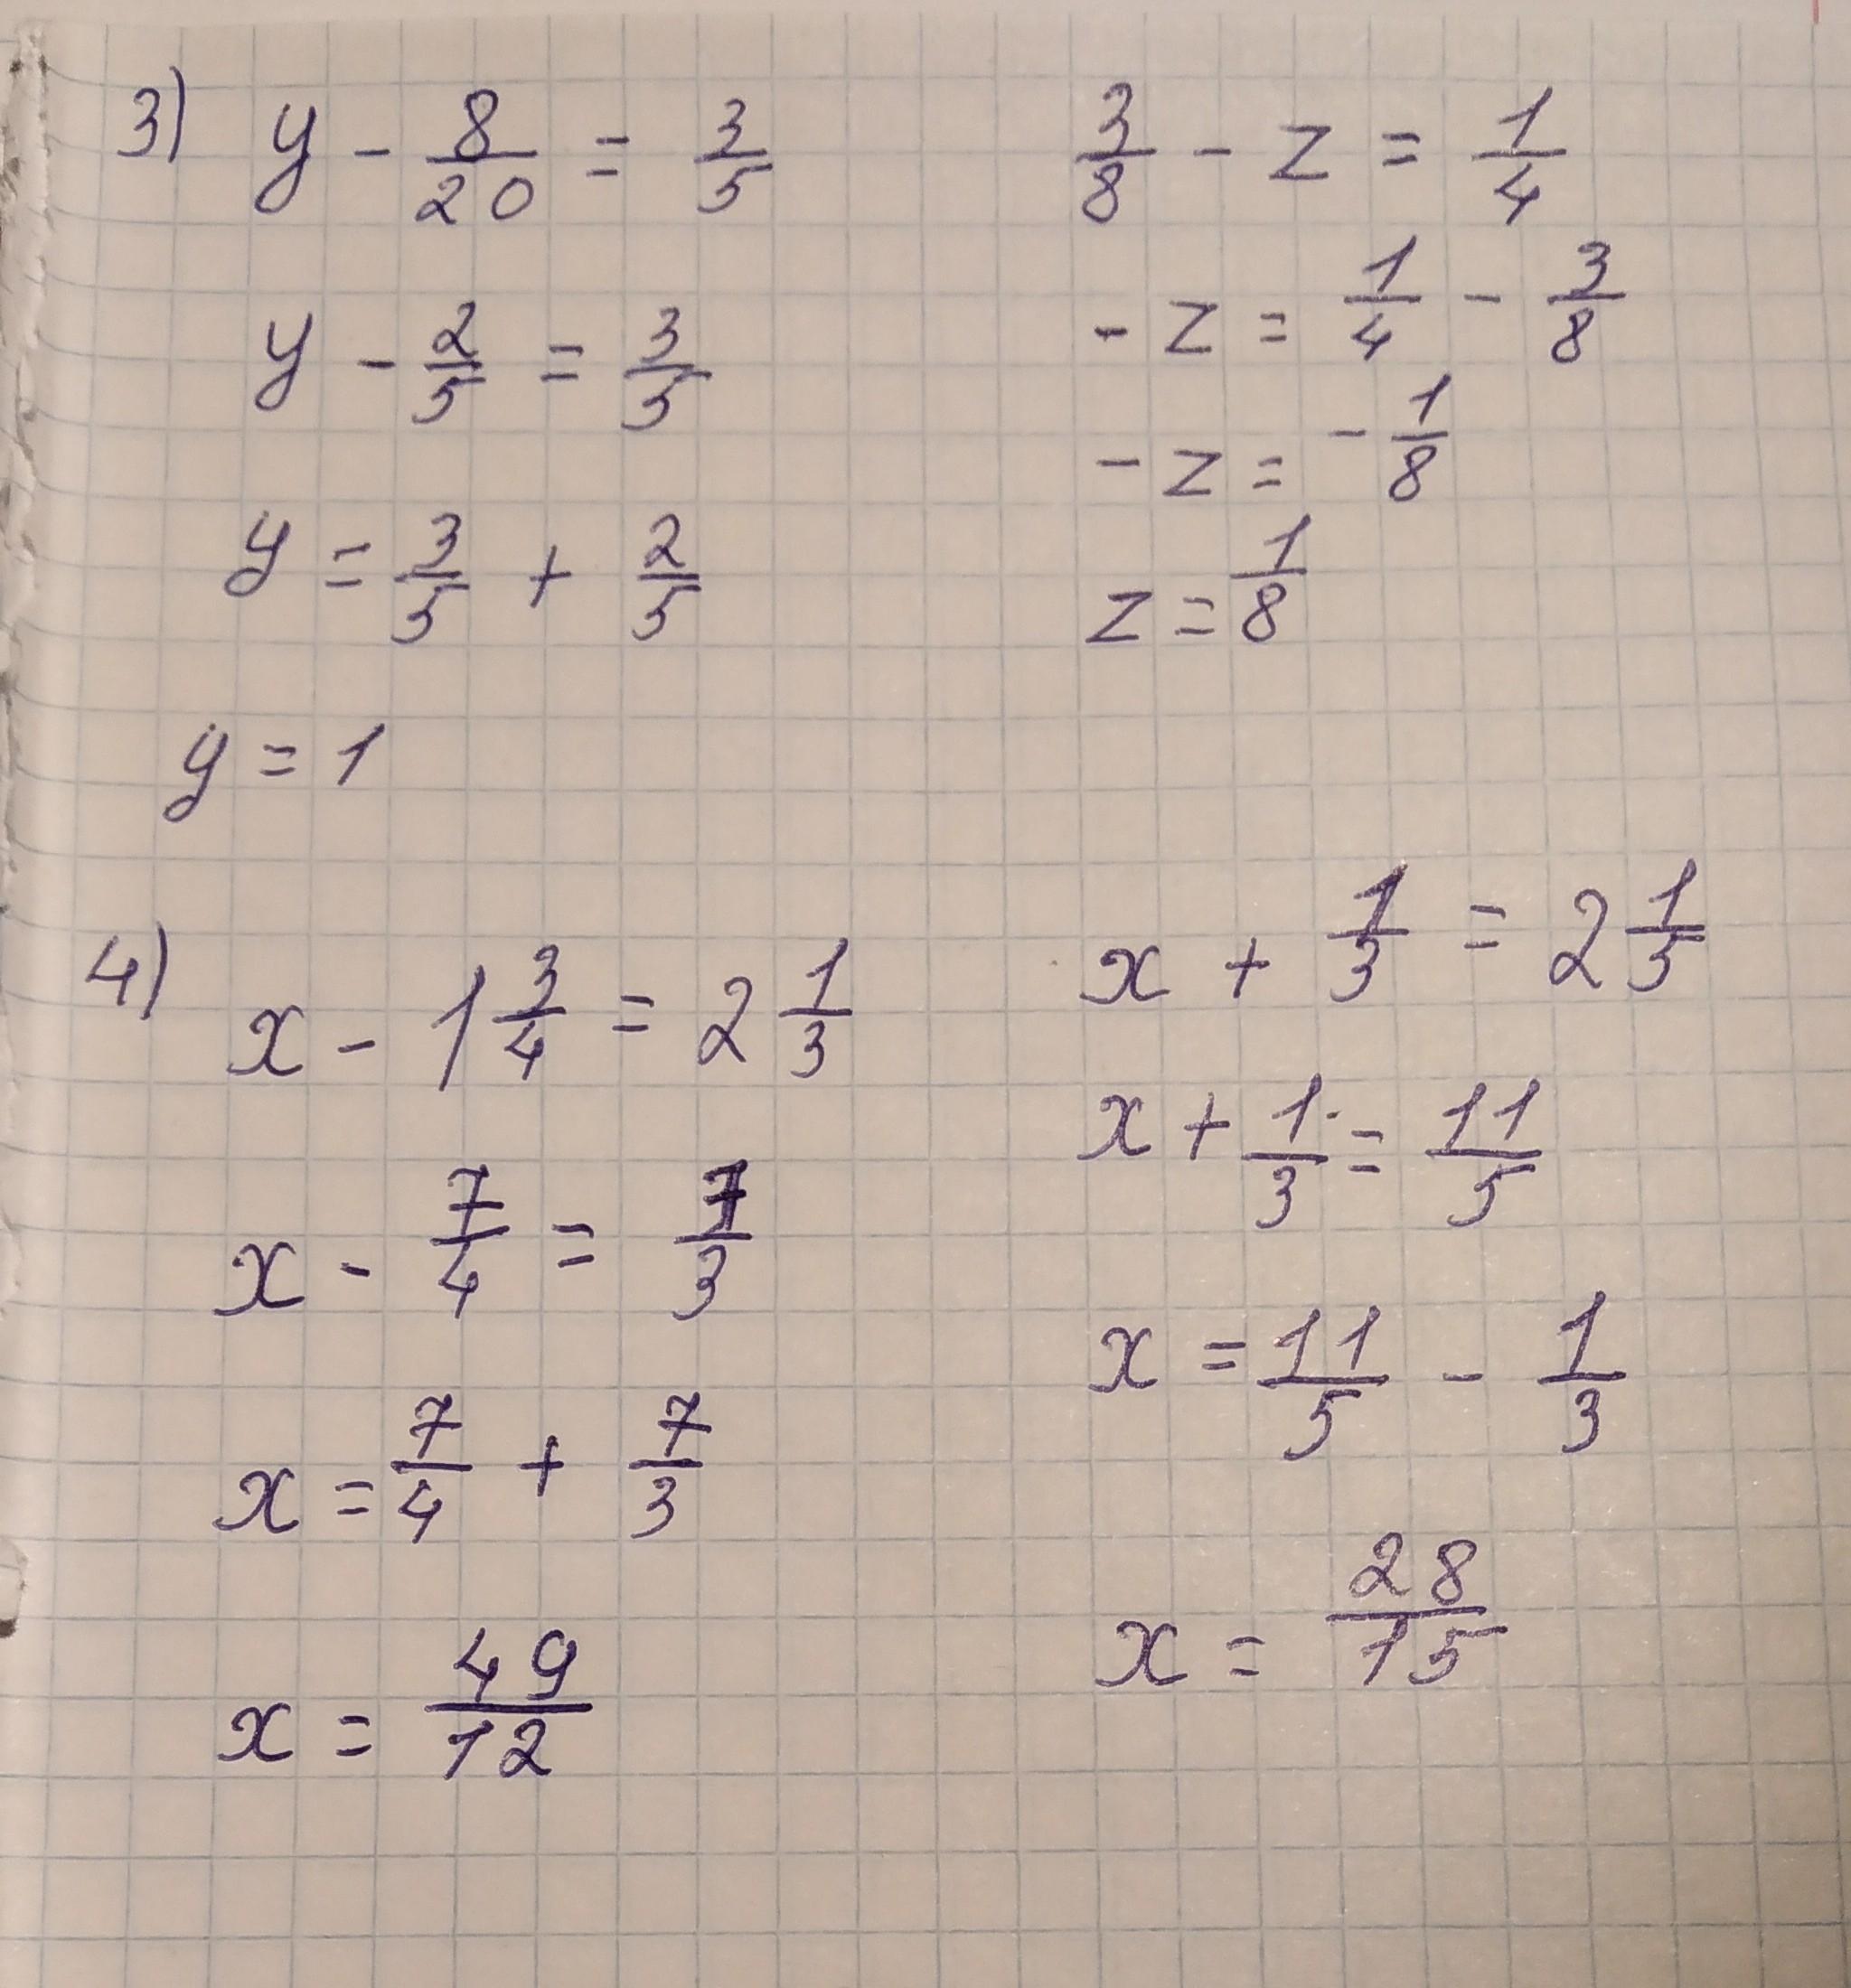 3) y - 8/20 = 3/5
y - 2/5 = 3/5
y = 3/5 + 2/5
y = 1
3/8 - z = 1/4
- z = 1/4 - 3/8
- z = - 1/8
z = 1/8
4) x - 1 3/4 = 2 1/3
x - 7/4 = 7/3
x = 7/4 + 7/3
x = 49/12
x + 1/3 = 2 1/5
x + 1/3 = 11/5
x = 11/5 - 1/3
x = 28/15